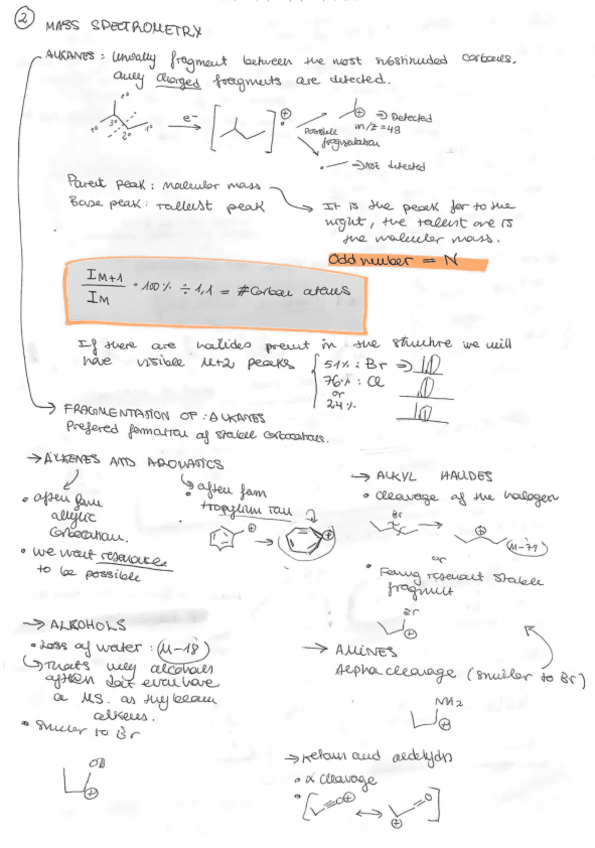 2 MASS SPECTROMETRY
ALKANES: Usually fragment between the most substituded carbons.
Only charged fragments are detected.
1° 1° 3° 2° 1°
e⁻
⊕ •
Possible fragmentation
⊕ → Detected
m/z = 43
• → not detected
Parent peak: molecular mass
Base peak: tallest peak
It is the peak far to the
right, the tallest one is
the molecular mass.
Odd number = N
I M+1 / I M • 100% ÷ 1,1 = # Carbon atoms
If there are halides present in the structure we will
have visible M+2 peaks
51% : Br →
76% : Cl
or
24%
→ FRAGMENTATION OF: ALKANES
Prefered formation of stable carbocations.
→ ALKENES AND AROMATICS
• often form
allylic
carbocation.
• we want resonance
to be possible
• often form
tropylium ion
⊕
→ ALKYL HALIDES
• cleavage of the halogen
Br
⊕
M-79
or
• Fermg resonant stable
fragment
Br
⊕
→ ALCOHOLS
• Loss of water: M-18
That's why alcohols
often don't even have
a MS. as they become
alkenes.
• Similar to Br
OH
⊕
→ AMINES
Alpha cleavage (similar to Br)
NH2
⊕
→ Ketons and aldehyds
• α cleavage
• [ ≡O⊕ ↔ =O ⊕ ]